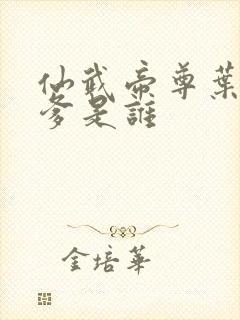 仙武帝尊葉
爹是誰
金培華